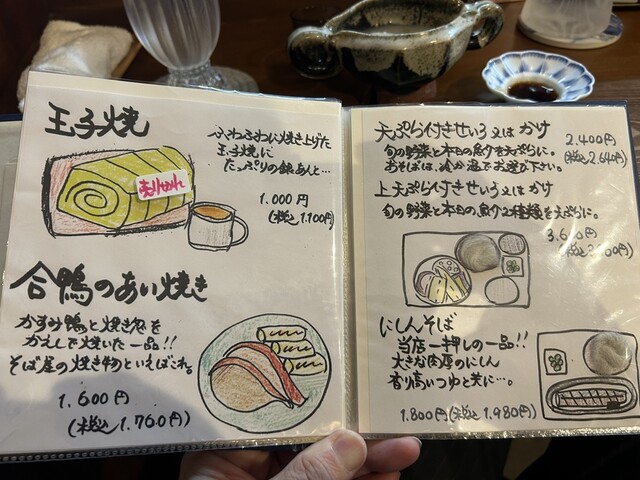 玉子焼
ふわふわに焼き上げた
玉子焼に
たっぷりの銀あんと…
売り切れ
1,000円
(税込1,100円)
合鴨のあい焼き
かすみ鴨と焼き葱を
かえしで焼いた一品!!
そば屋の焼き物といえばこれ。
1,600円
(税込1,760円)
天ぷら付きせいろ又はかけ
2,400円
(税込2,640円)
旬の野菜と本日の魚介を天ぷらに。
おそばは、冷か温でお選び下さい。
上天ぷら付きせいろ又はかけ
旬の野菜と本日の魚介2種類を天ぷらに。
にしんそば
当店一押しの一品!!
大きな肉厚のにしん
香り高いつゆと共に…。
1,800円(税込1,980円)